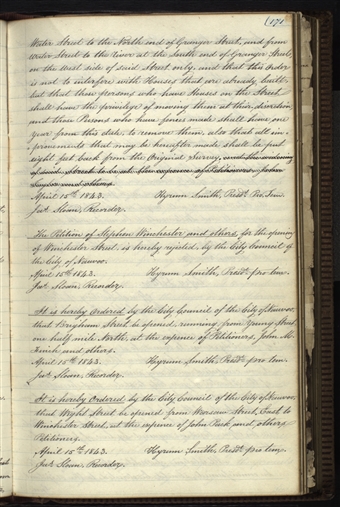 (171
Water Street to the North end of Granger Street, and from
Water Street to the river at the South end of Granger Street,
on the west side of said Street only. and that this order
is not to interfere with Houses that are already built,
but that those persons who have Houses on the Street
shall have the privilege of moving them at their discretion
and those Persons who have fences made shall have one
year from this date, to remove them, also that all im-
provements that may be hereafter made shall be put
eight feet back from the Original Survey, and the opening
of said Street to be at the expense of Petitioners, John
Taylor and others.
April 15th 1843. Hyrum Smith, Presdt. Pro. Tem.
Jas. Sloan, Recorder.
The Petition of Stephen Winchester and others, for the opening
of Winchester Street, is hereby rejected, by the City Council of
the City of Nauvoo.
April 15th 1843. Hyrum Smith, Presdt. pro tem.
Jas. Sloan, Recorder.
It is hereby Ordered by the City Council of the City of Nauvoo,
that Brigham Street be opened, running from Young Street
one half mile North, at the expense of Petitioners, John M.
Finch and others.
April 15th 1843. Hyrum Smith, Presdt. pro tem.
Jas. Sloan, Recorder.
It is hereby Ordered by the City Council of the City of Nauvoo,
that Wight Street be opened from Warsaw Street, East to
Winchester Street, at the expense of John Pack and others
Petitioners.
April 15th 1843. Hyrum Smith, Presdt. pro tem.
Jas. Sloan, Recorder.